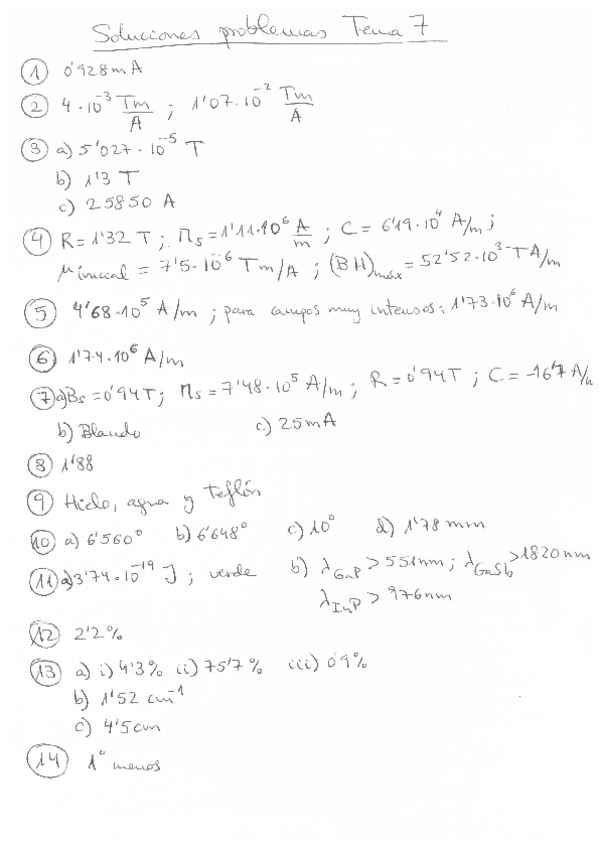 Soluciones problemas Tema 7
① 0'928 mA
② 4·10⁻³ Tm/A ; 1'07·10⁻² Tm/A
③ a) 5'027·10⁻⁵ T
b) 1'3 T
c) 25850 A
④ R = 1'32 T ; Ms = 1'11·10⁶ A/m ; C = 6'19·10⁴ A/m ;
μ inicial = 7'5·10⁻⁶ Tm/A ; (BH)máx = 52'52·10³ TA/m
⑤ 4'68·10⁵ A/m ; para campos muy intensos: 1'73·10⁶ A/m
⑥ 1'74·10⁶ A/m
⑦ a) Bs = 0'94T ; Ms = 7'48·10⁵ A/m ; R = 0'94T ; C = -16'7 A/m
b) Blando c) 25mA
⑧ 1'88
⑨ Hielo, agua y teflón
⑩ a) 6'560° b) 6'648° c) 10° d) 1'78 mm
⑪ a) 3'74·10⁻¹⁹ J ; verde b) λGaP > 551nm ; λGaSb > 1820nm
λInP > 976nm
⑫ 2'2%
⑬ a) i) 4'3% ii) 75'7% iii) 0'9%
b) 1'52 cm⁻¹
c) 4'5cm
⑭ 1° menos